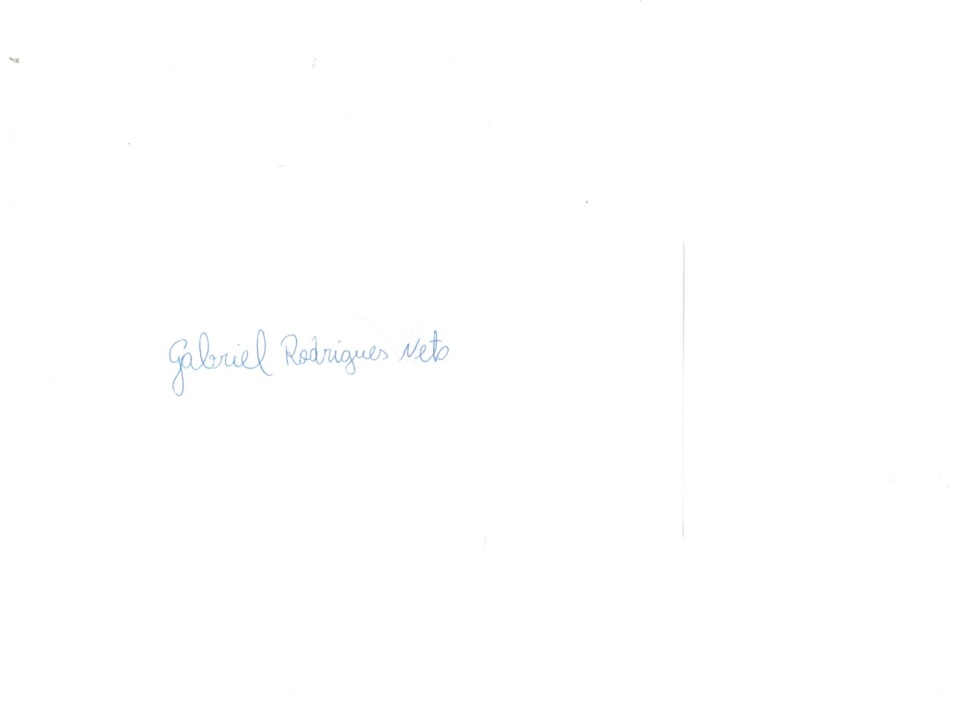 Gabriel Rodrigues Neto